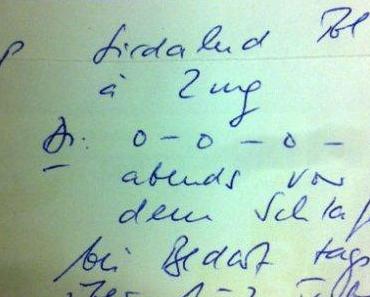 Sirdalud Tbl
à 2 mg
D: 0 - 0 - 0 -
abends vor
dem Schlaf
bei Bedarf tags
über 1-2